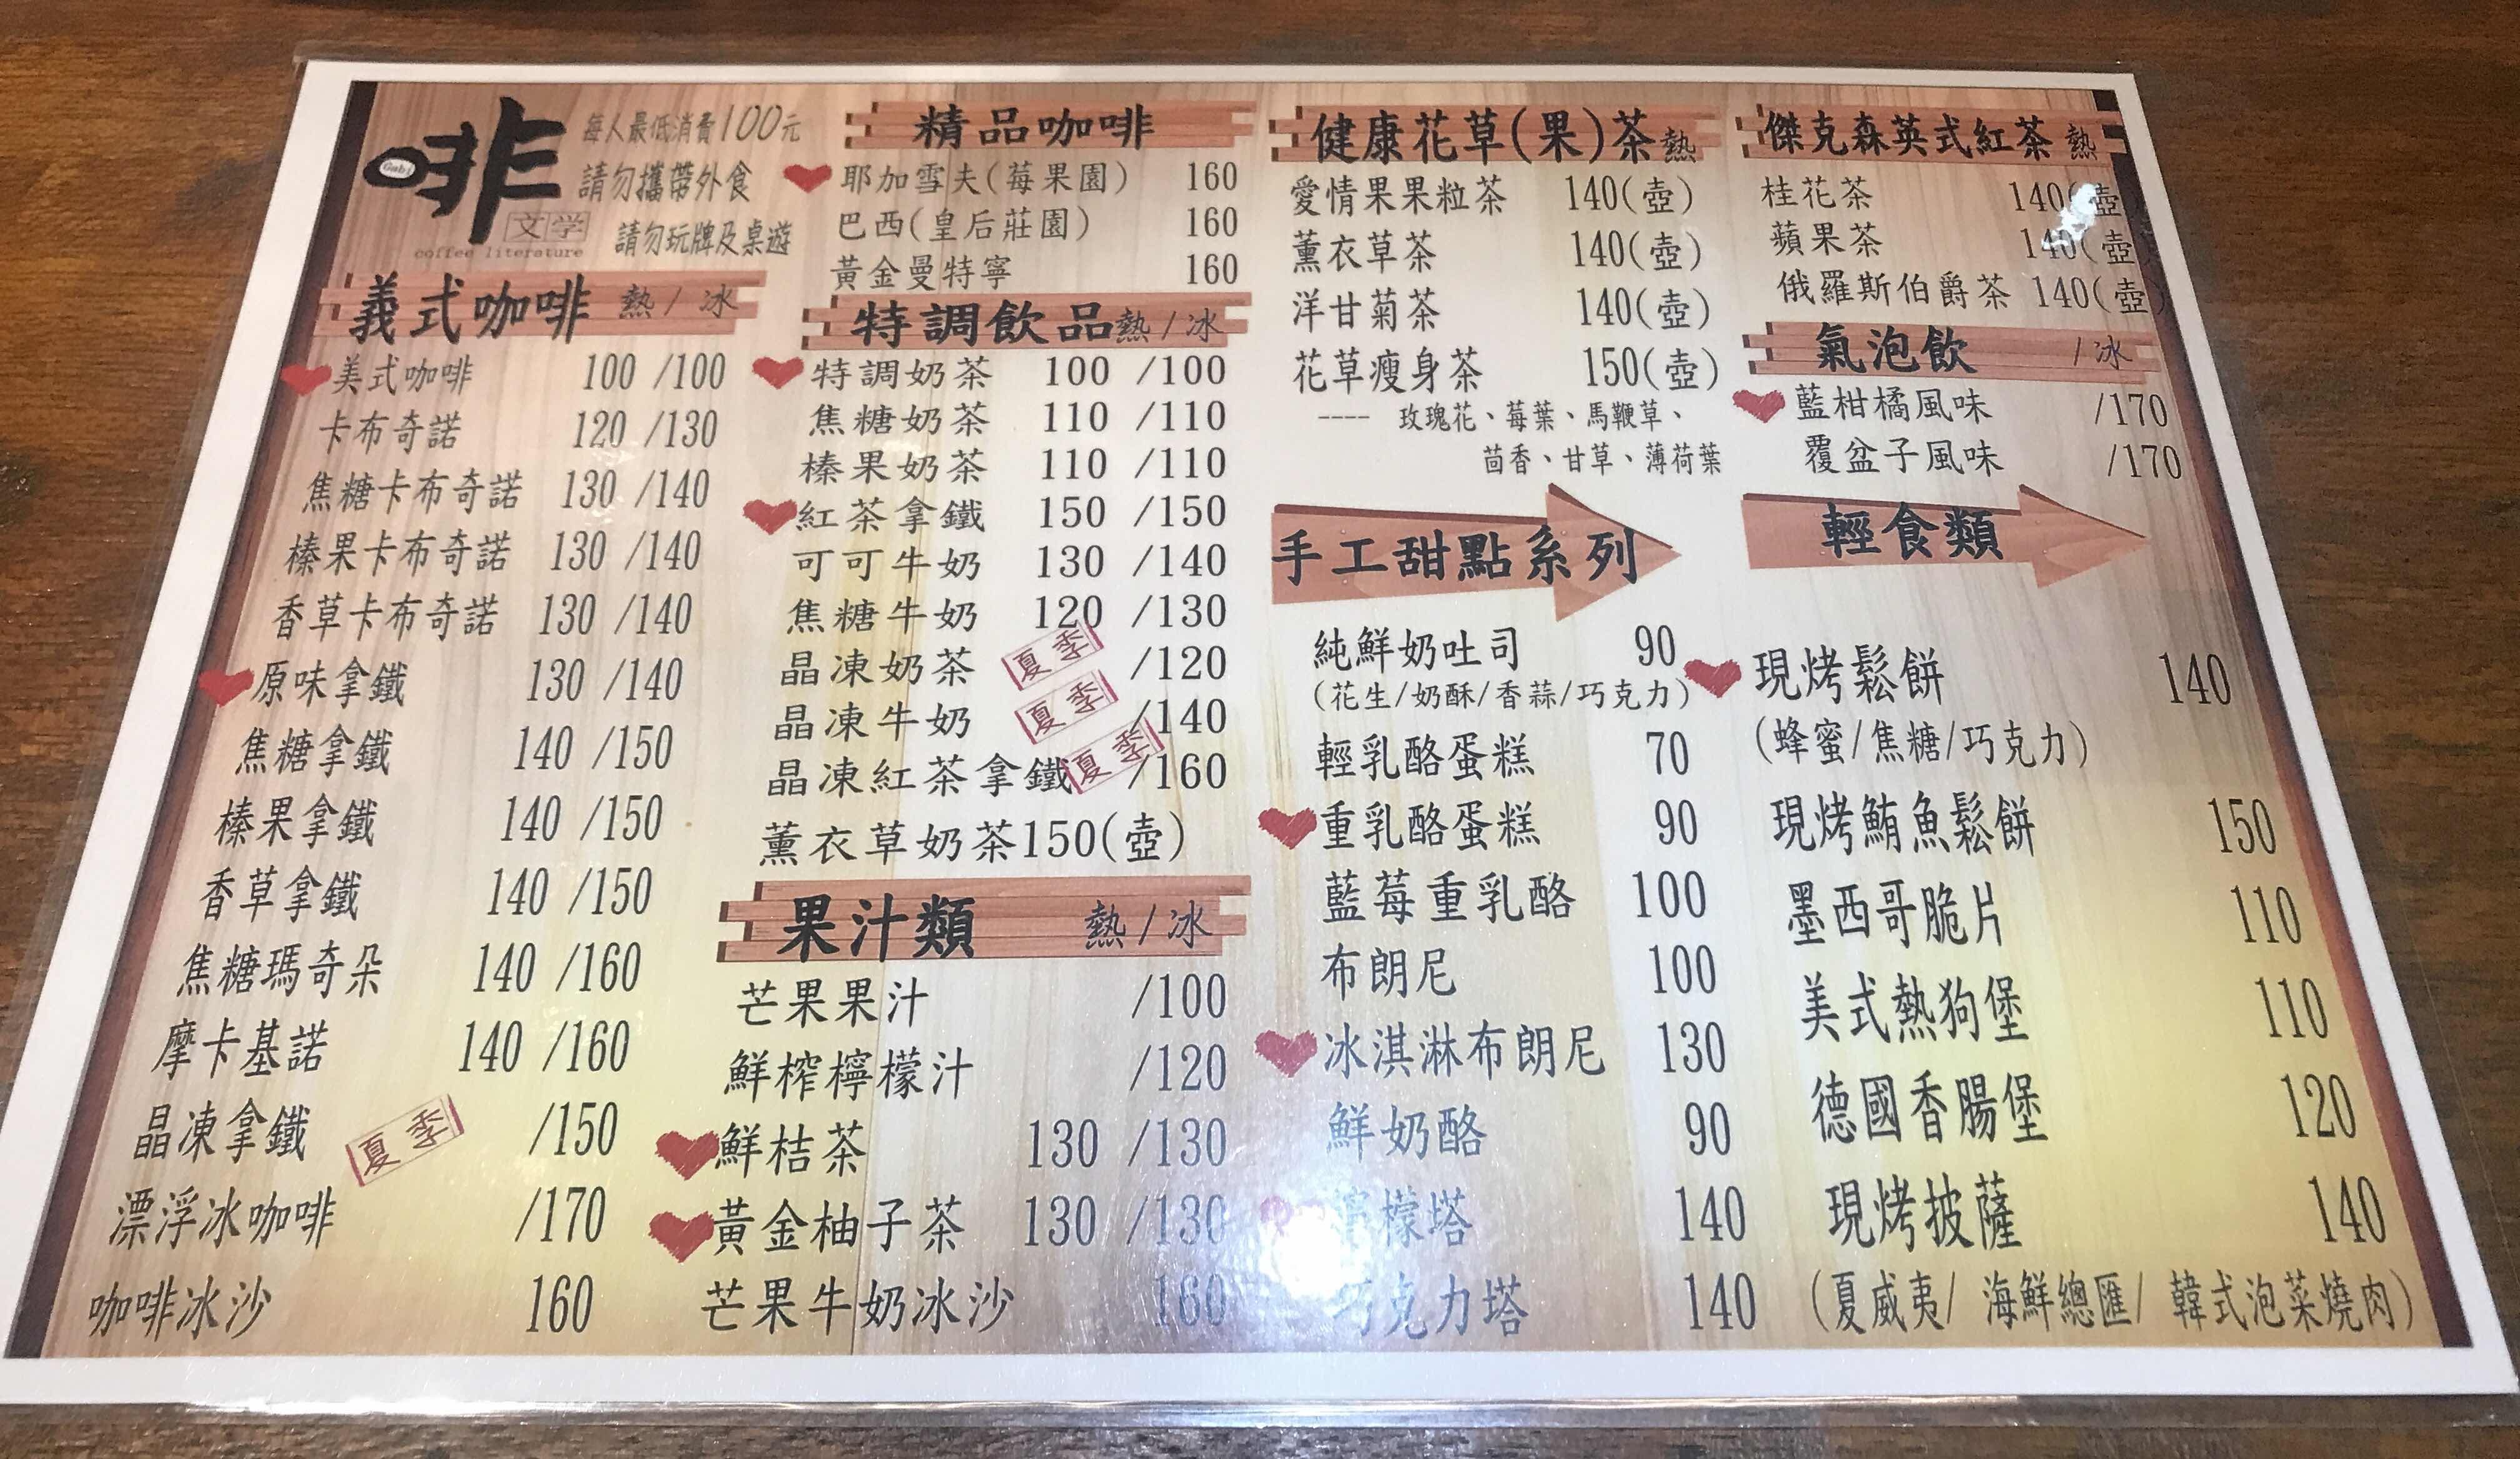 啡
Gabi
文学
coffee literature
每人最低消費100元
請勿攜帶外食
請勿玩牌及桌遊
義式咖啡 熱/冰
美式咖啡 100 /100
卡布奇諾 120 /130
焦糖卡布奇諾 130 /140
榛果卡布奇諾 130 /140
香草卡布奇諾 130 /140
原味拿鐵 130 /140
焦糖拿鐵 140 /150
榛果拿鐵 140 /150
香草拿鐵 140 /150
焦糖瑪奇朵 140 /160
摩卡基諾 140 /160
晶凍拿鐵 夏季 /150
漂浮冰咖啡 /170
咖啡冰沙 160
精品咖啡
耶加雪夫(莓果園) 160
巴西(皇后莊園) 160
黃金曼特寧 160
特調飲品 熱/冰
特調奶茶 100 /100
焦糖奶茶 110 /110
榛果奶茶 110 /110
紅茶拿鐵 150 /150
可可牛奶 130 /140
焦糖牛奶 120 /130
晶凍奶茶 夏季 /120
晶凍牛奶 夏季 /140
晶凍紅茶拿鐵 夏季 /160
薰衣草奶茶150(壺)
果汁類 熱/冰
芒果果汁 /100
鮮榨檸檬汁 /120
鮮桔茶 130 /130
黃金柚子茶 130 /130
芒果牛奶冰沙 160
健康花草(果)茶 熱
愛情果果粒茶 140(壺)
薰衣草茶 140(壺)
洋甘菊茶 140(壺)
花草瘦身茶 150(壺)
---- 玫瑰花、莓葉、馬鞭草、
茴香、甘草、薄荷葉
手工甜點系列
純鮮奶吐司 90
(花生/奶酥/香蒜/巧克力)
輕乳酪蛋糕 70
重乳酪蛋糕 90
藍莓重乳酪 100
布朗尼 100
冰淇淋布朗尼 130
鮮奶酪 90
檸檬塔 140
巧克力塔 140
傑克森英式紅茶 熱
桂花茶 140(壺
蘋果茶 140(壺
俄羅斯伯爵茶 140(壺)
氣泡飲 /冰
藍柑橘風味 /170
覆盆子風味 /170
輕食類
現烤鬆餅 140
(蜂蜜/焦糖/巧克力)
現烤鮪魚鬆餅 150
墨西哥脆片 110
美式熱狗堡 110
德國香腸堡 120
現烤披薩 140
(夏威夷/ 海鮮總匯/ 韓式泡菜燒肉)